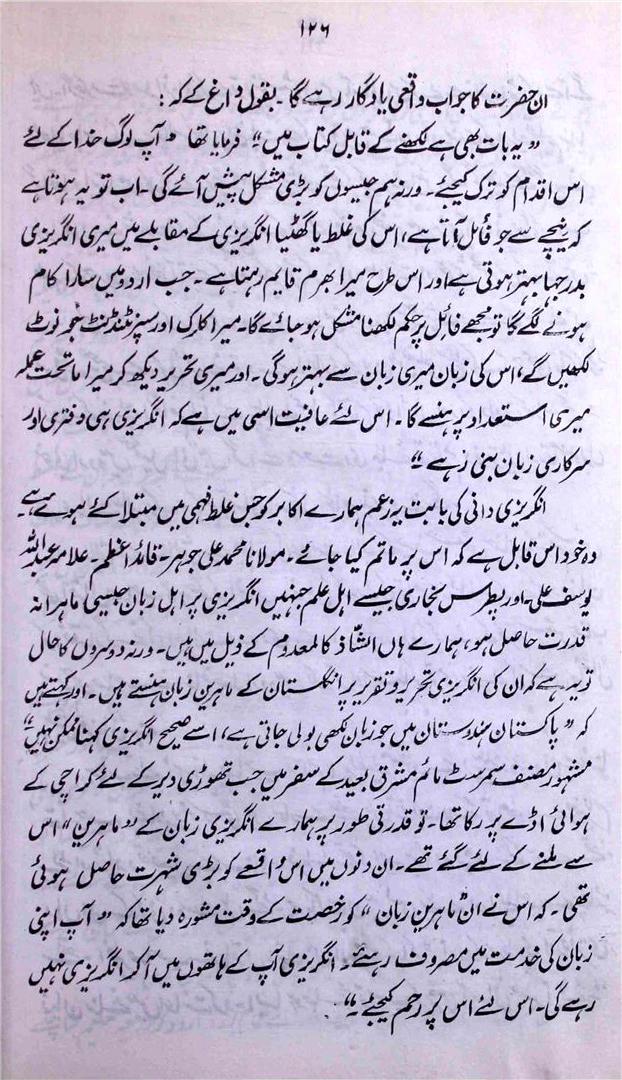 ۱۲۶
ان حضرت کا جواب واقعی یادگار رہے گا۔ بقول داغ کے کہ :
”یہ بات بھی ہے لکھنے کے قابل کتاب میں“ فرمایا تھا ”آپ لوگ خدا کے لئے
اس اقدام کو ترک کیجئے۔ ورنہ ہم جیسوں کو بڑی مشکل پیش آئے گی۔ اب تو یہ ہوتا ہے
کہ نیچے سے جو فائل آتا ہے، اس کی غلط یا گھٹیا انگریزی کے مقابلے میں میری انگریزی
بدرجہا بہتر ہوتی ہے اور اس طرح میرا بھرم قایم رہتا ہے۔ جب اردو میں سارا کام
ہونے لگے گا تو مجھے فائل پر حکم لکھنا مشکل ہو جائے گا۔ میرا کلرک اور سپرنٹنڈنٹ جو نوٹ
لکھیں گے، اس کی زبان میری زبان سے بہتر ہوگی۔ اور میری تحریر دیکھ کر میرا ماتحت عملہ
میری استعداد پر ہنسے گا۔ اس لئے عافیت اسی میں ہے کہ انگریزی ہی دفتری اور
سرکاری زبان بنی رہے“
انگریزی دانی کی بابت یہ زعم ہمارے اکابر کو جس غلط فہمی میں مبتلا کئے ہوے ہے۔
وہ خود اس قابل ہے کہ اس پر ماتم کیا جائے۔ مولانا محمد علی جوہر۔ قائد اعظم۔ علامہ عبداللہ
یوسف علی۔ اور پطرس بخاری جیسے اہل علم جنہیں انگریزی پر اہل زبان جیسی ماہرانہ
قدرت حاصل ہو، ہمارے ہاں الشاذ کا لمعدوم کے ذیل میں ہیں۔ ورنہ دوسروں کا حال
تو یہ ہے کہ ان کی انگریزی تحریر و تقریر پر انگلستان کے ماہرین زبان ہنستے ہیں۔ اور کہتے ہیں
کہ ”پاکستان ہندوستان میں جو زبان لکھی بولی جاتی ہے، اسے صحیح انگریزی کہنا ممکن نہیں“
مشہور مصنف سمرسٹ مائم مشرق بعید کے سفر میں جب تھوڑی دیر کے لئے کراچی کے
ہوائی اڈے پر رکا تھا۔ تو قدرتی طور پر ہمارے انگریزی زبان کے ”ماہرین“ اس
سے ملنے کے لئے گئے تھے۔ ان دنوں میں اس واقعے کو بڑی شہرت حاصل ہوئی
تھی۔ کہ اس نے ان ”ماہرین زبان“ کو رخصت کے وقت مشورہ دیا تھا کہ ”آپ اپنی
زبان کی خدمت میں مصروف رہئے۔ انگریزی آپ کے ہاتھوں میں آکر انگریزی نہیں
رہے گی۔ اس لئے اس پر رحم کیجئے۔“